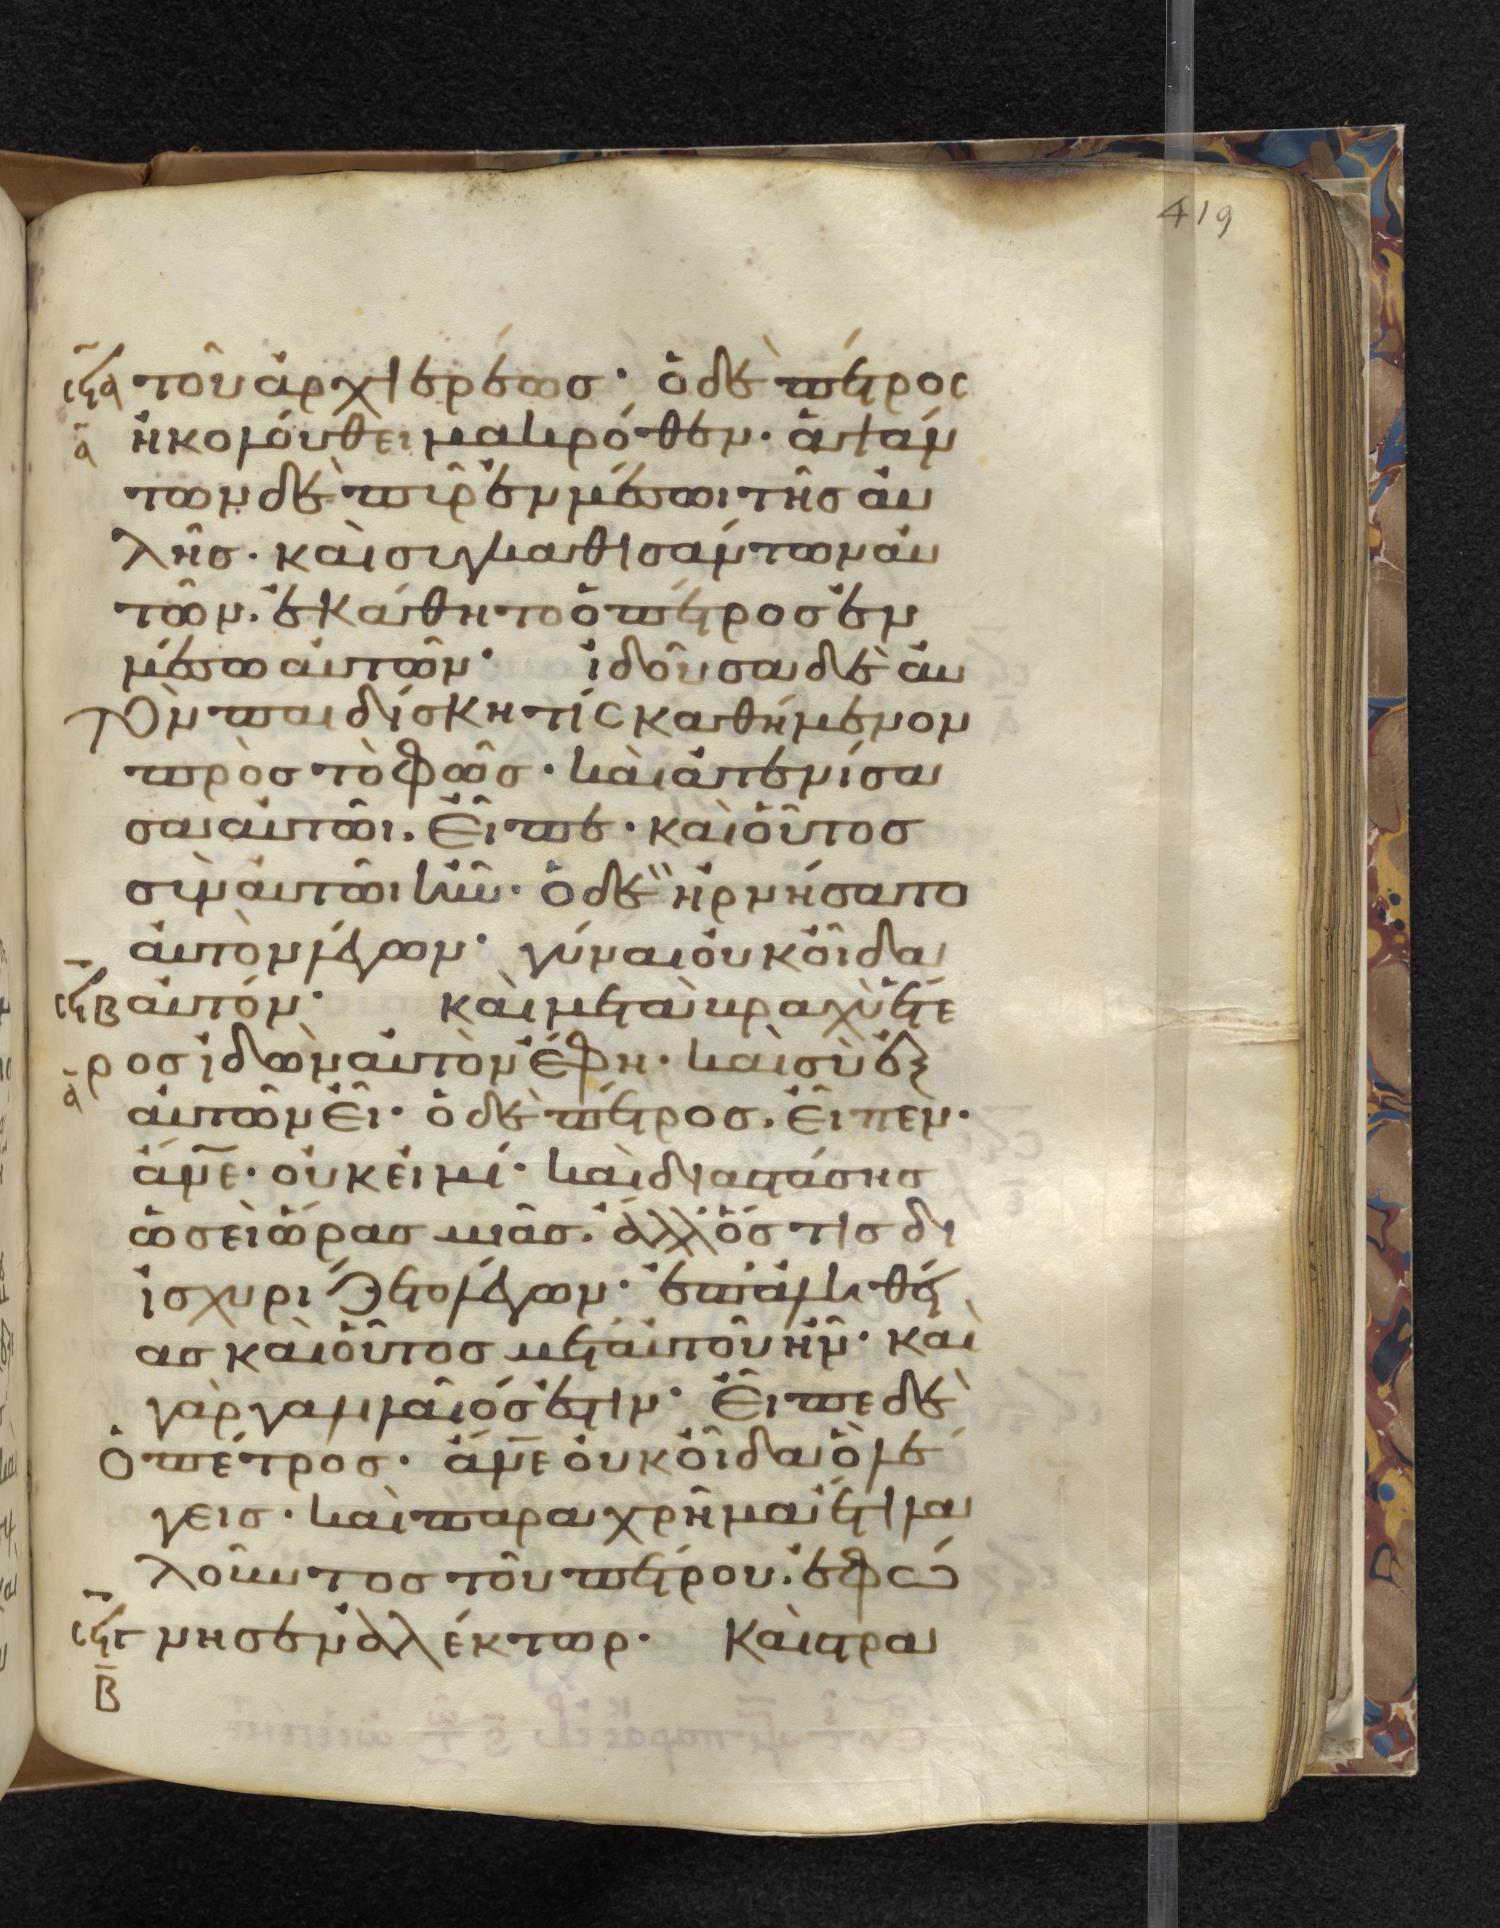 419
τοῦ ἀρχιερέωσ· ὁ δὲ πέτροσ
ἠκολούθει μακρόθεν· ἁψάν
των δὲ πῦρ ἐν μέσωι τῆσ αυ
λῆσ· καὶ συγκαθισάντων αυ
τῶν· ἐκάθητο ὁ πέτροσ ἐν
μέσω αυτῶν· ἰδοῦσα δὲ αυ
τὸν παιδίσκη τίσ καθήμενον
πρὸσ τὸ φῶσ· καὶ ἀτενίσα
σα αυτῶι· εἶπε· καὶ οὗτοσ
σὺν αυτῶι ἦν· ὁ δὲ ἠρνήσατο
αυτὸν λέγων· γύναι οὐκ οἶδα
αυτόν· καὶ μετὰ βραχὺ ἕτε
ροσ ἰδὼν αυτὸν ἔφη· καὶ σὺ ἐξ
αυτῶν εἶ· ὁ δὲ πέτροσ· εἶπεν·
ἄνε· οὐκ εἰμί· καὶ διαστάσησ
ὡσεὶ ὥρασ μιᾶσ· ἄλλόσ τισ δι
ϊσχυρίζετο λέγων· ἐπ' ἀληθεί
ασ καὶ οὗτοσ μετ' αυτοῦ ἦν· καὶ
γὰρ γαλιλαῖόσ ἐστιν· εἶπε δὲ
ὁ πέτροσ· ἄνε οὐκ οἶδα ὃ λέ
γεισ· καὶ παραχρῆμα ἔτι λα
λοῦντοσ τοῦ πέτρου· ἐφώ
σπγ νησεν ἀλέκτωρ· καὶ στρα
Β